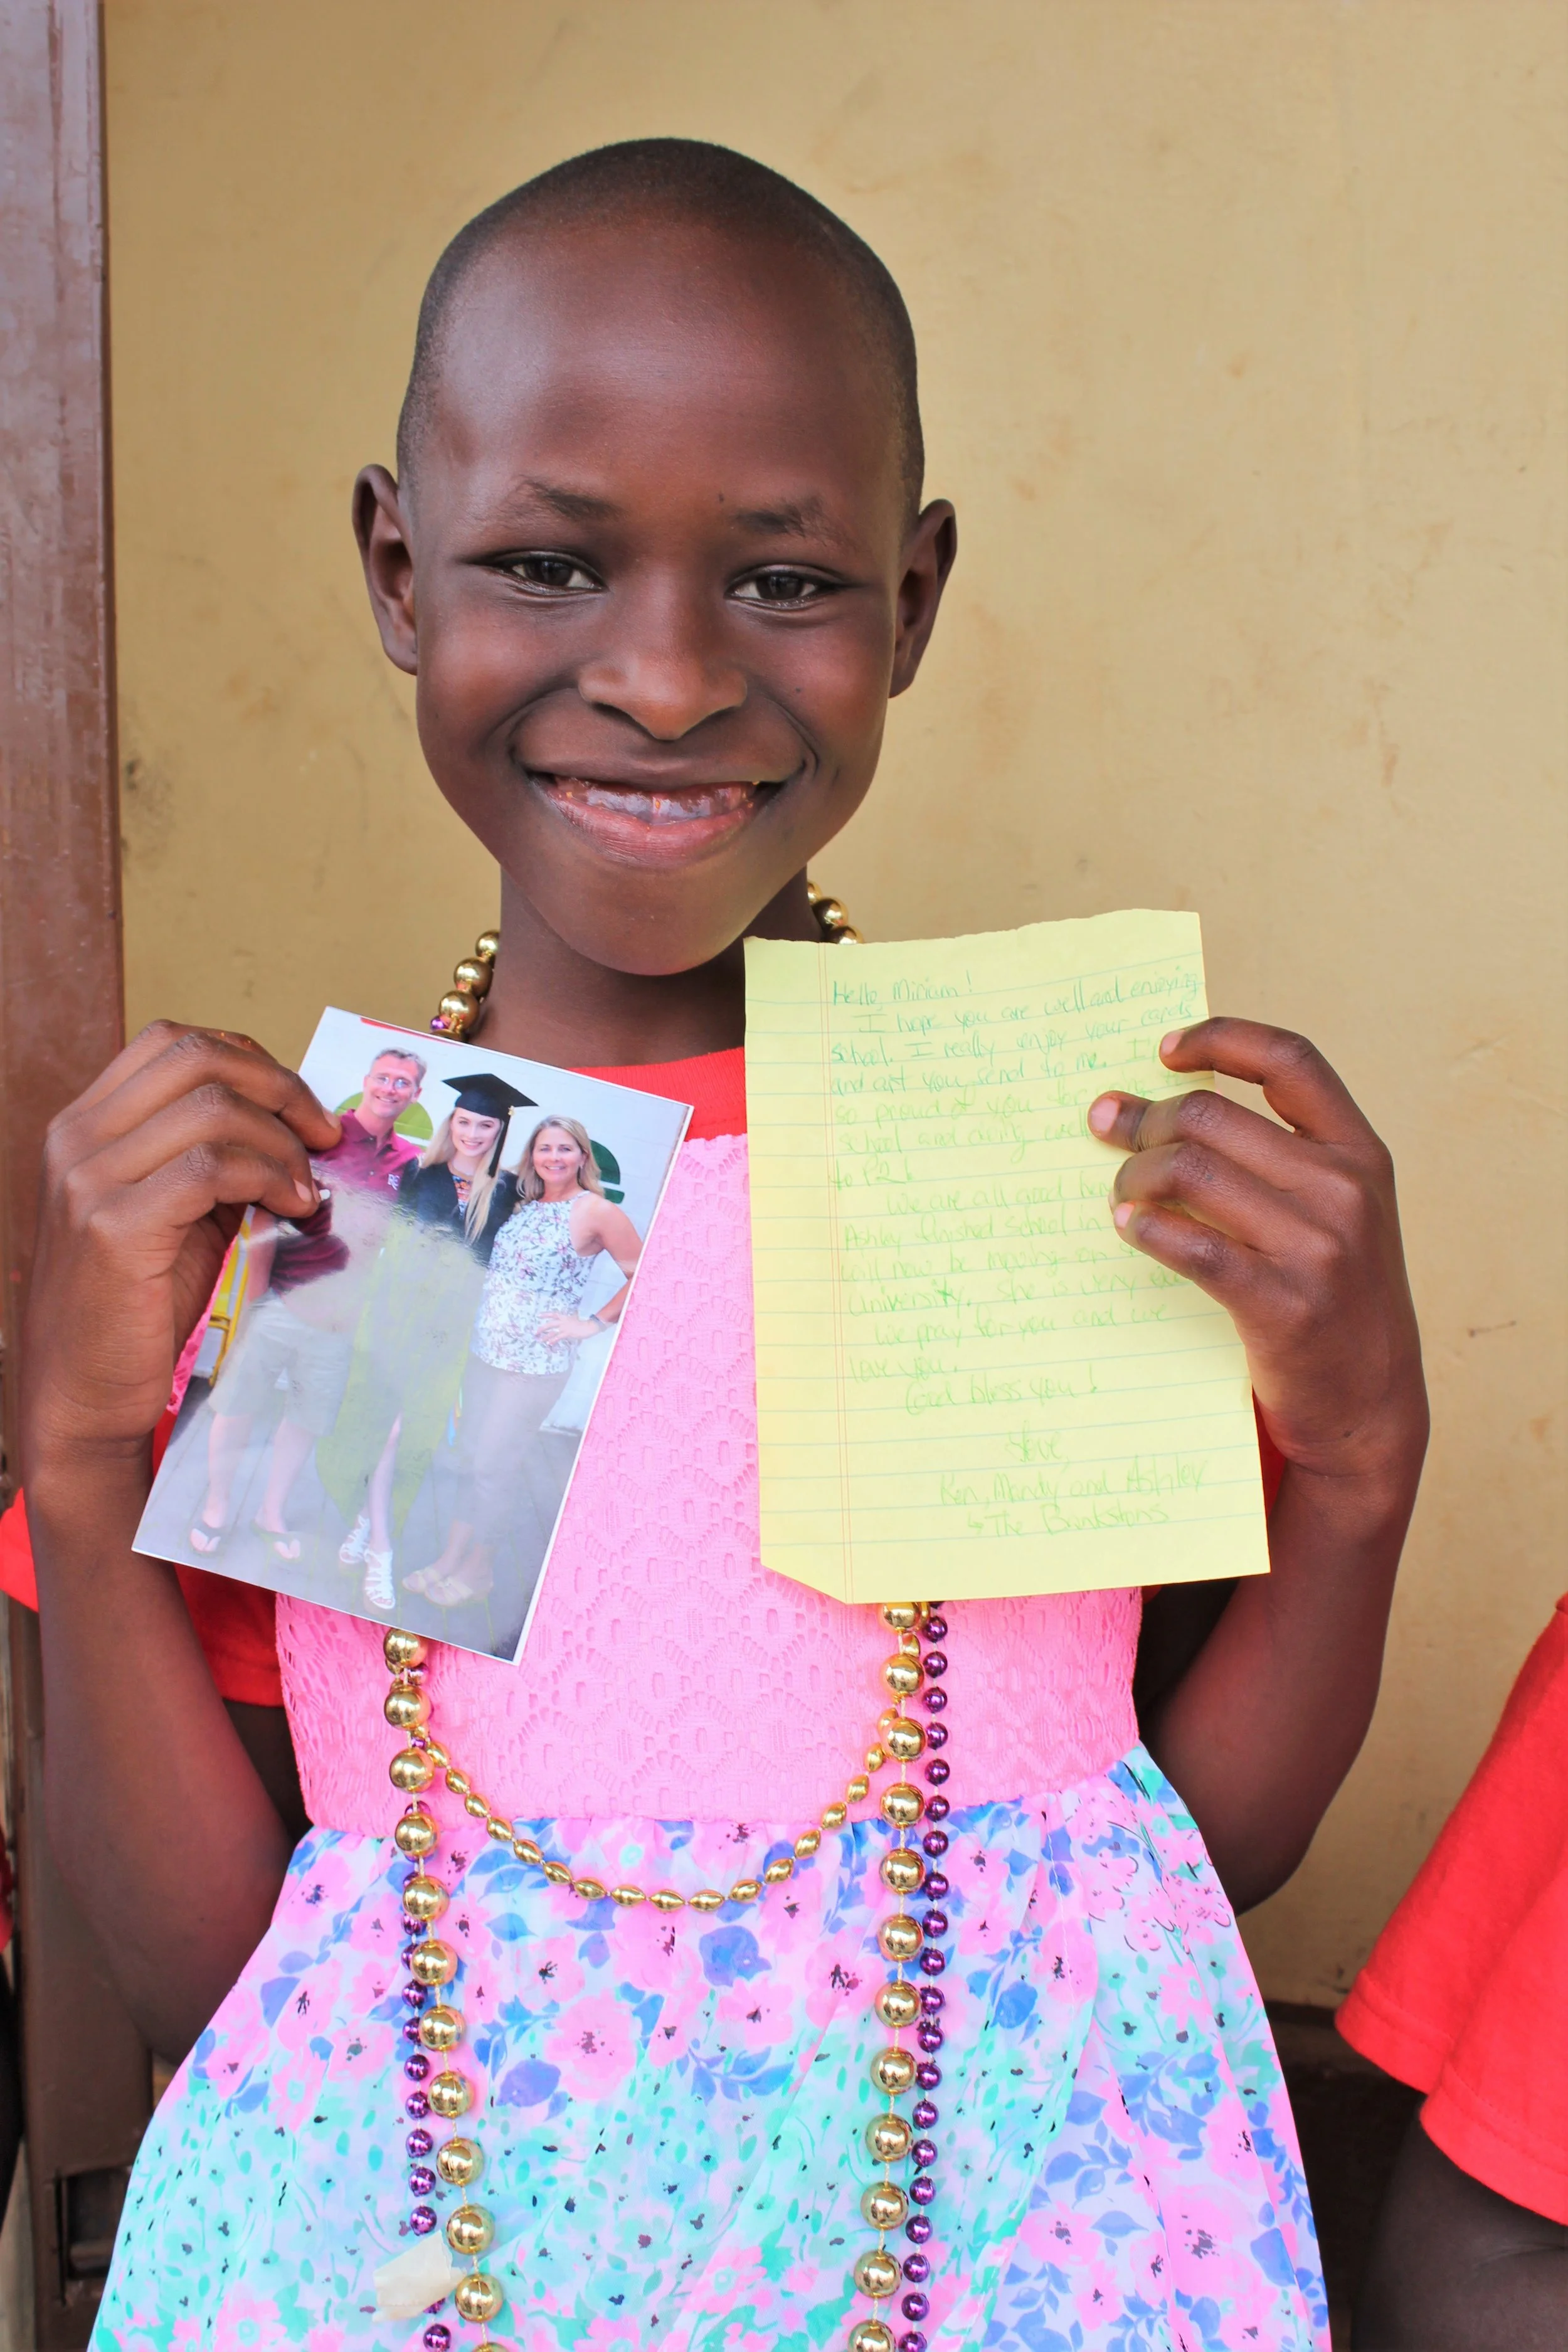 Hello Miriam!
I hope you are well and enjoying
school. I really enjoy your cards
and art you send to me. I
so proud of you for
school and doing well
to P2!
We are all good her
Ashley finished school in
will now be moving on
University. She is very
We pray for you and we
love you.
God bless you!
Ken, Mandy and Ashley
The